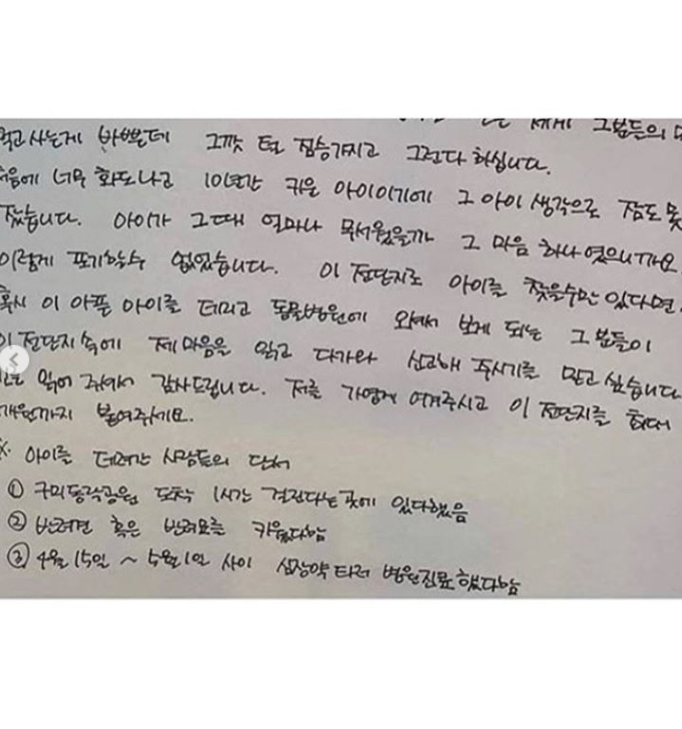 세게 그분들의
먹고 사는게 바쁜데 그깟 털 짐승가지고 그런다 하십니다.
처음에 너무 화도나고 10년간 키운 아이이기에 그 아이 생각으로 잠도 못
잤습니다. 아이가 그때 얼마나 무서웠을까 그 마음 하나였으니까요
이렇게 포기할수 없었습니다. 이 전단지로 아이를 찾을수만 있다면.
혹시 이 아픈 아이를 데리고 동물병원에 와에서 보게 되는 그 분들이
이 전단지 속에 제 마음을 읽고 다가와 신고해 주시기를 믿고 싶습니다
읽어 줘에서 감사드립니다. 저를 가엽게 여겨주시고 이 전단지를
개월까지 붙여주세요.
※ 아이를 데려간 사람들의 단서
① 구미동락공원 도착 1시간 걸린다는 곳에 있다했음
② 반려견 혹은 반려묘를 키웠다함
③ 4월 15일 ~ 5월 1일 사이 심장약 타러 병원진료 했다함